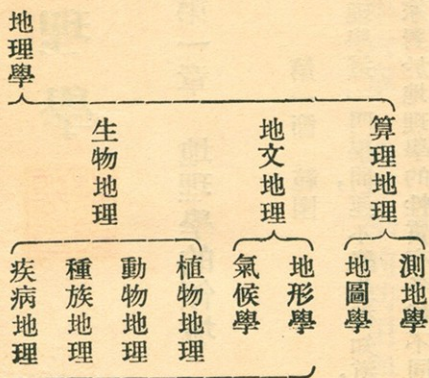 地理學
算理地理
地文地理
生物地理
測地學
地圖學
地形學
氣候學
植物地理
動物地理
種族地理
疾病地理